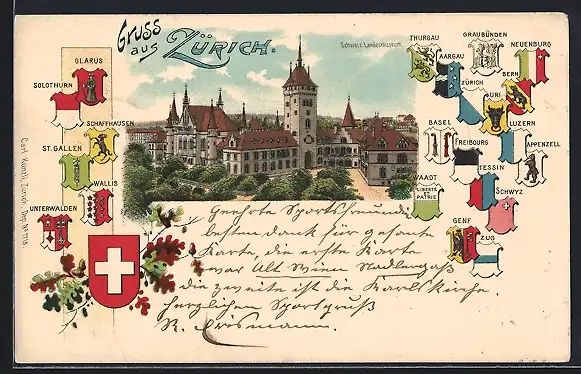 Gruss
aus
ZÜRICH.
Schweiz. Landesmuseum.
GLARUS
SOLOTHURN
SCHAFFHAUSEN
ST. GALLEN
WALLIS
UNTERWALDEN
THURGAU
GRAUBÜNDEN
NEUENBURG
AARGAU
ZÜRICH
BERN
URI
LUZERN
BASEL
FREIBOURG
APPENZELL
TESSIN
WAADT
LIBERTÉ
ET
PATRIE
SCHWYZ
GENF
ZUG
Carl Künzli, Zürich. Dep. No
Geehrte Sportsfreundin
besten dank für gesante
Karte, die erste Karte
war Alt Wien Nadlergaß
die zweite ist die Karlskirche.
herzlichen Sportsgruß
R.